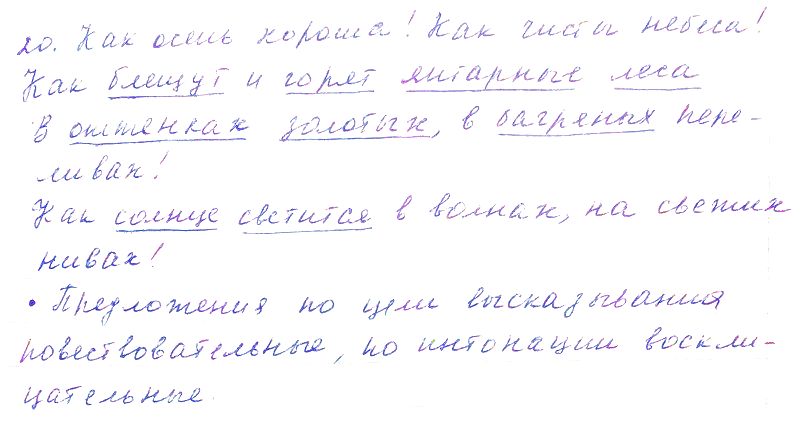 20. Как осень хороша! Как чисты небеса!
Как блещут и горят янтарные леса
В оттенках золотых, в багряных пере-
ливах!
Как солнце светится в волнах, на свежих
нивах!
• Предложения по цели высказывания
повествовательные, по интонации воскли-
цательные.